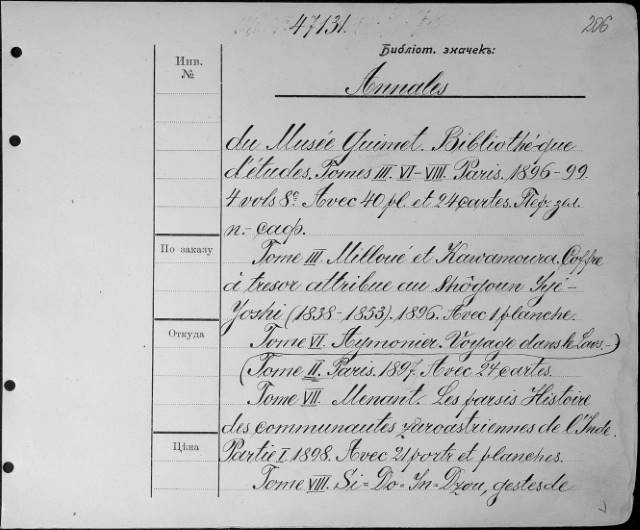 47131.
206
Библіот. значекъ:
Инв.
№
Annales
du Musée Guimet. Bibliothéque
d'études. Tomes III. VI–VIII. Paris. 1896–99.
4 vols 8º. Avec 40 pl. et 24 cartes. Пер. зел.
п.- саф.
По заказу
Tome III Milloué et Kawamoura. Coffre
à tresor attribue au Shôgoun Iyé-
Yoshi (1838–1853). 1896. Avec 1 planche.
Откуда
Tome VI. Aymonier. Voyage dans le Laos.-
(Tome II. Paris. 1897. Avec 24 cartes.
Tome VII. Menant. Les parsis Histoire
des communautes zoroastriennes de l'Inde.
Цѣна
Partie I 1898. Avec 21 portr et planches.
Tome VIII. Si=Do=In=Dzou, gestes de